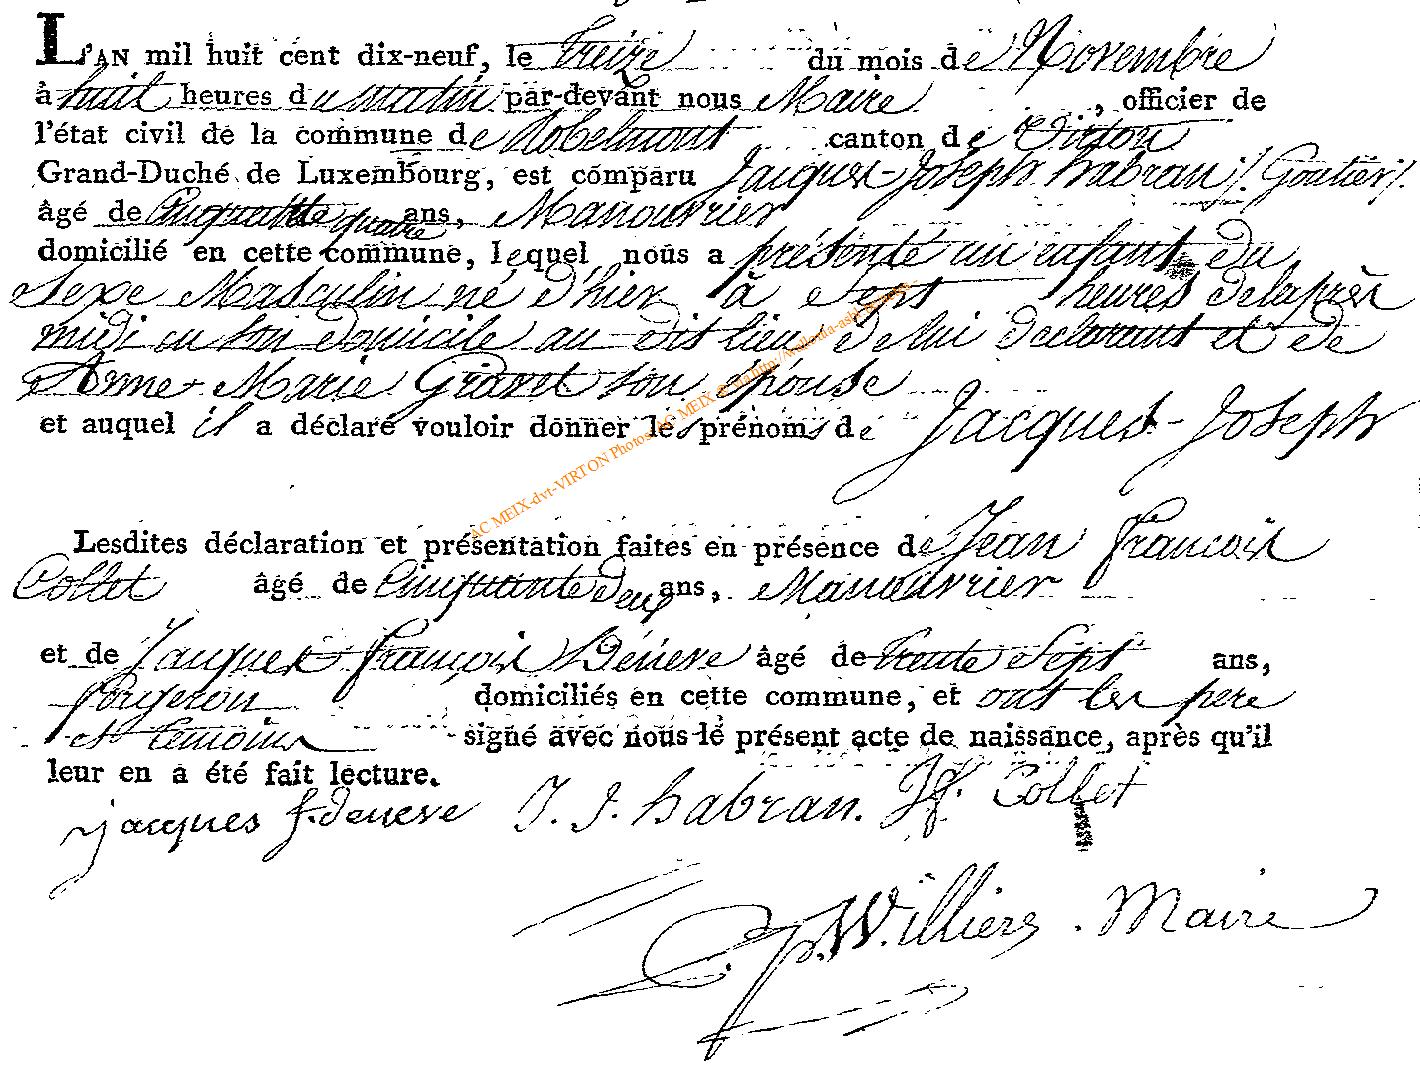 L'AN mil huit cent dix-neuf, le treize du mois de Novembre
à huit heures du matin par-devant nous Maire, officier de
l'état civil de la commune de Robelmont canton de Virton
Grand-Duché de Luxembourg, est comparu Jacques-Joseph habran /. Goutier /.
âgé de Cinquante quatre ans, Manouvrier
domicilié en cette commune, lequel nous a présenté un enfant du
Sexe Masculin né d'hier à Sept heures delaprès
midi en Son domicile au dit lieu de lui declarant et de
Anne-Marie Gravet Son epouse
et auquel il a déclaré vouloir donner les prénoms de Jacques-Joseph
Lesdites déclaration et présentation faites en présence de Jean François
Collet âgé de Cinquante deux ans, Manouvrier
et de Jacques François Déneve âgé de trente Sept ans,
forgeron domiciliés en cette commune, et ont les pere
et temoins signé avec nous le présent acte de naissance, après qu'il
leur en a été fait lecture.
jacques f. deneve J. J. habran. Jf. Collet
Williers. Maire
AC MEIX-dvt-VIRTON Photos AC MEIX